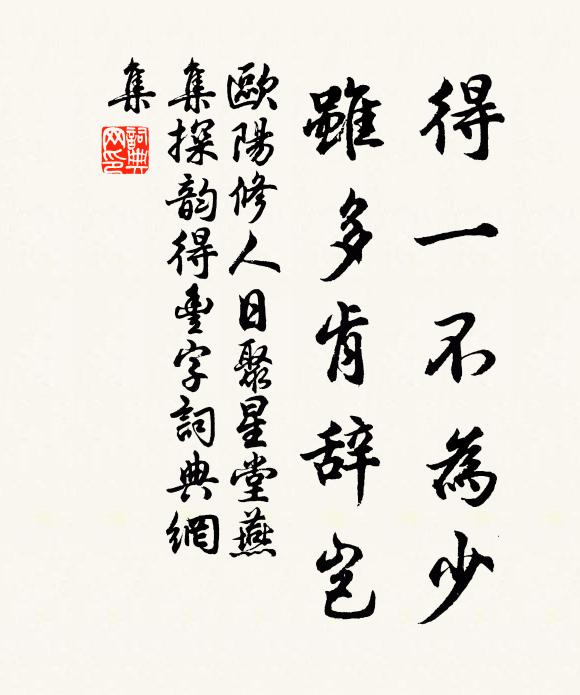 得一不為少
雖多肯辞豈
歐陽修人日聚星堂燕
集探韵得豐字詞典網
集
詞典网印